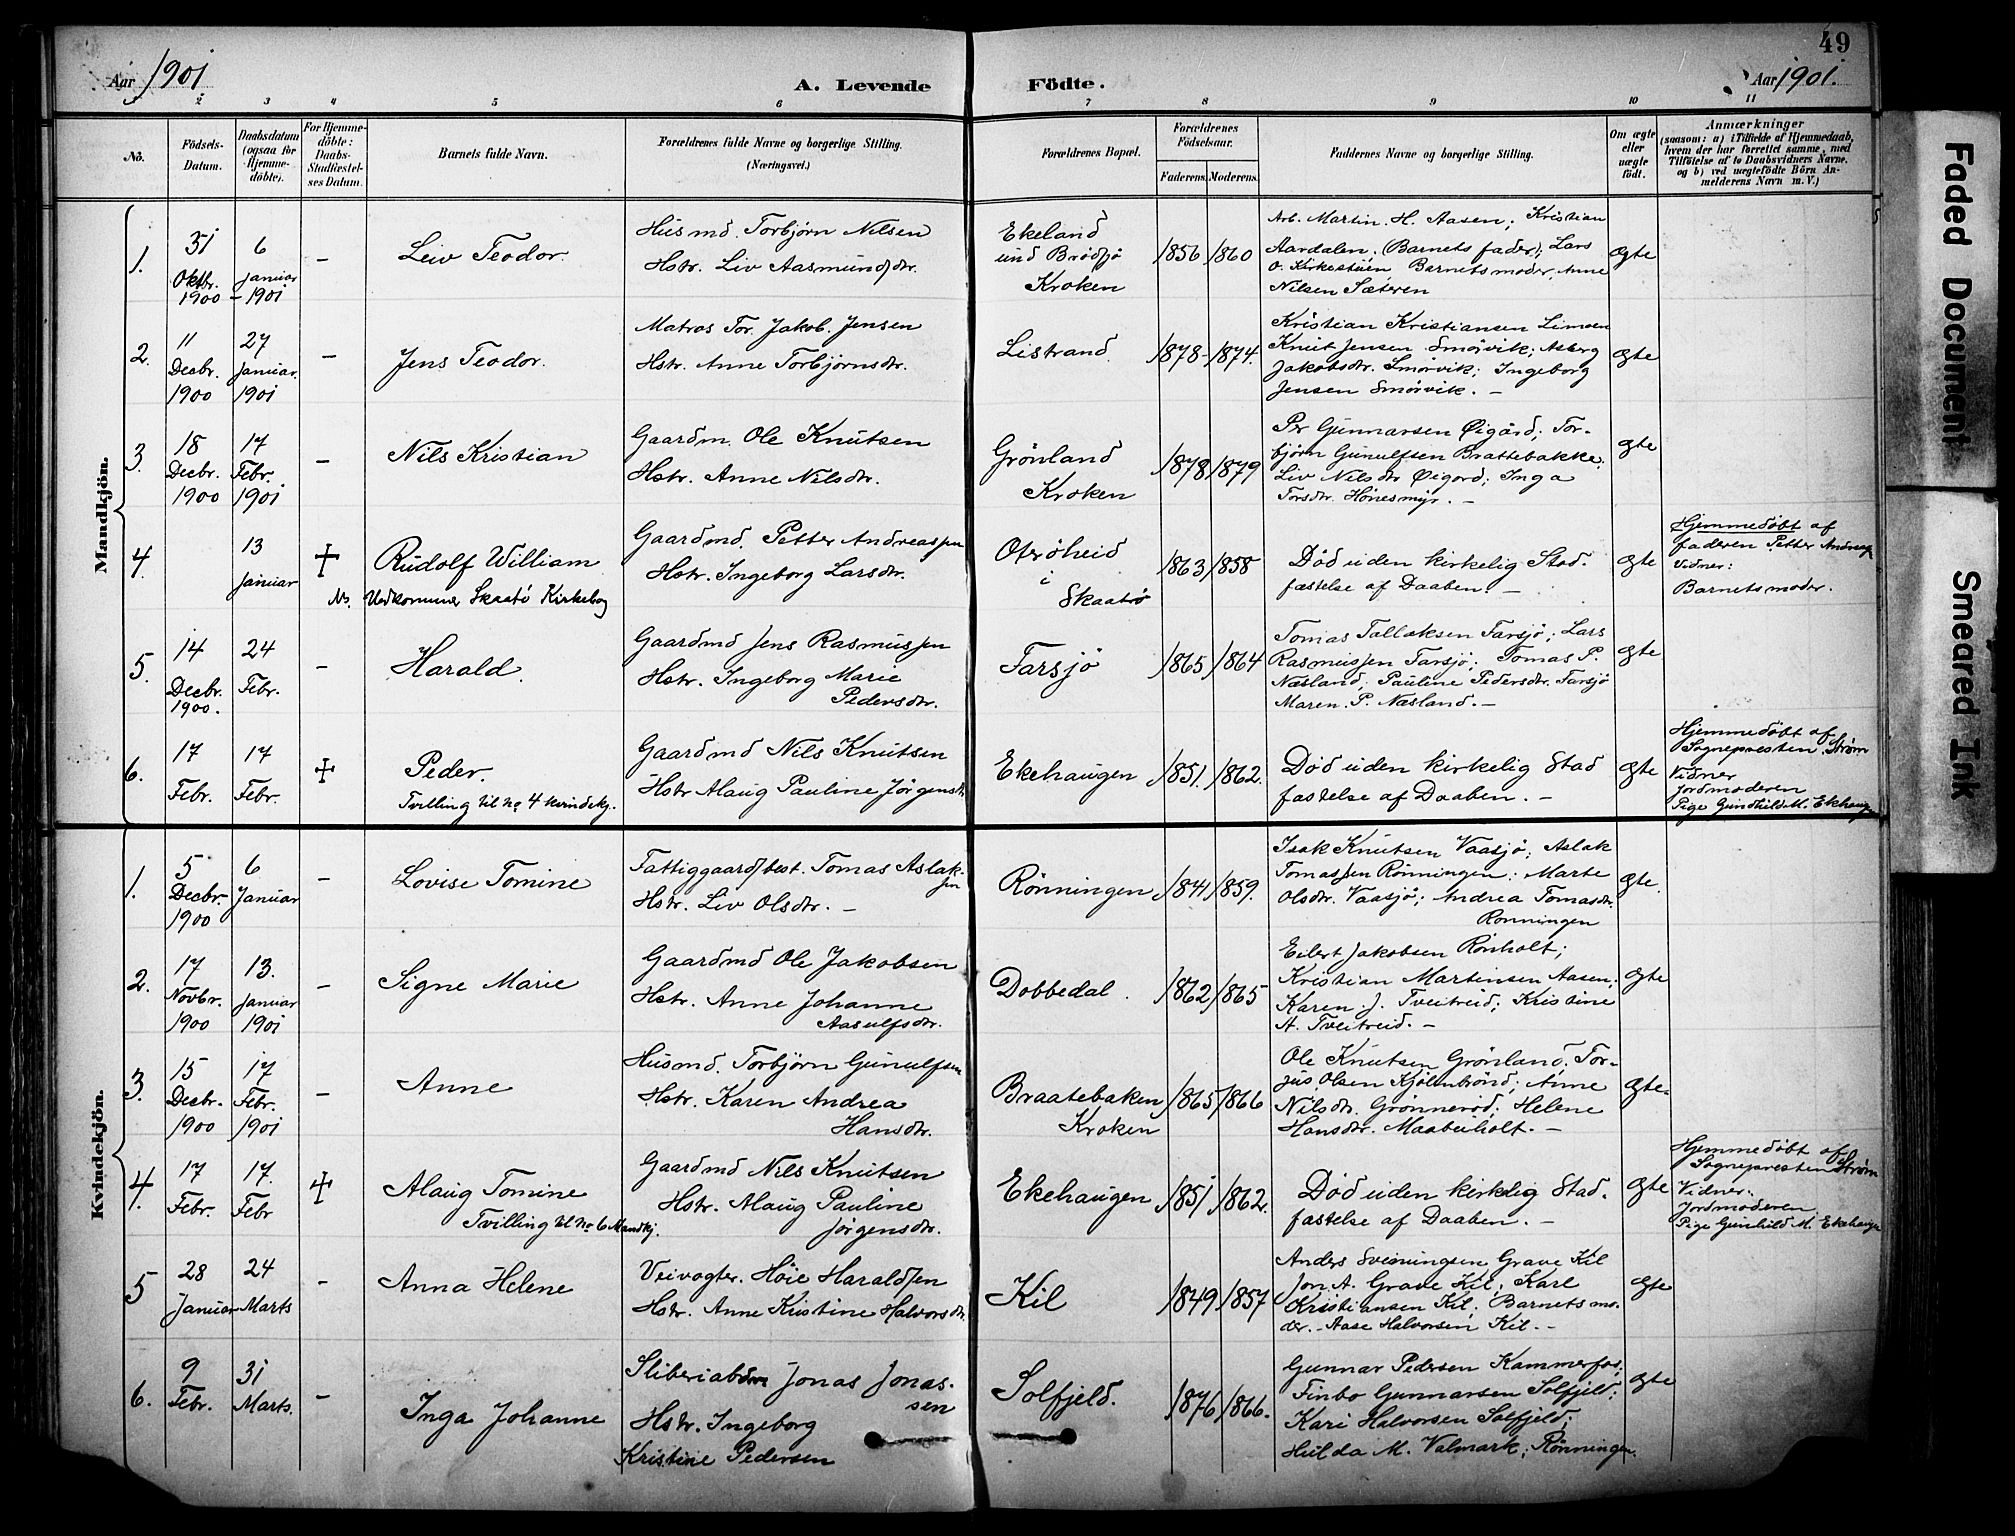 49
Aar 1901
A. Levende Födte.
Aar 1901.
1 2 3 4 5 6 7 8 9 10 11
No.
Födsels-
Datum.
Daabsdatum
(ogsaa for
Hjemme-
döbte).
For Hjemme-
döbte:
Daabs-
Stadfæstel-
ses Datum.
Barnets fulde Navn.
Forældrenes fulde Navne og borgerlige Stilling.
(Næringsvei.)
Forældrenes Bopæl.
Forældrenes
Födselsaar.
Faderens. Moderens.
Faddernes Navne og borgerlige Stilling.
Om ægte
eller
uægte
födt.
Anmærkninger
(saasom: a) i Tilfælde af Hjemmedaab,
hvem der har forrettet samme, med
Tilföielse af to Daabsvidners Navne.
og b) ved uægtefödte Börn An-
melderens Navn m. V.)
Mandkjön.
1.
31
Oktbr.
1900
6
Januar
- 1901
-
Leiv Teodor.
Husmd. Torbjørn Nilsen
Hstr. Liv Aasmundsdtr.
Ekeland
und Brødsjø
Kroken
1856 1860
Arb. Martin. H. Aasen; Kristian
Aardalen, (Barnets fader); Lars
O. Kirkestuen, Barnets moder, Anne
Nilsen Sæteren
Ægte
2.
11
Decbr.
1900
27
Januar.
1901
-
Jens Teodor.
Matros Tor. Jakob. Jensen
Hstr. Anne Torbjørnsdtr.
Listrand.
1878- 1874.
Kristian Kristiansen
Knut Jensen Smørvik; Asberg
Jakobsdtr. Smørvik; Ingeborg
Jensen Smørvik. -
Ægte
3.
18
Decbr.
1900
17
Febr.
1901
-
Nils Kristian
Gaardm. Ole Knutsen
Hstr. Anne Nilsdtr.
Grönland
Kroken
1878 1879
Per Gunnarsen Øigård; Tor-
bjørn Gunulfsen Brattebakke.
Liv Nilsdtr Øigord; Inga
Torsdtr. Hönesmyr. -
Ægte
4.
13
Januar
+
Rudolf William
Nb. Vedkommer Skaatø Kirkebog
Gaardmd. Petter Andreassen
Hstr. Ingeborg Larsdtr.
Oterøheid
i
Skaatø
1863 1858
Død uden kirkelig Stad.
fæstelse af Daaben. -
Ægte
Hjemmedøbt af
faderen Petter
Vidner:
Barnets moder.
5.
14
Decbr.
1900.
24
Febr.
-
Harald.
Gaardmd Jens Rasmussen
Hstr. Ingeborg Marie
Pedersdtr.
Farsjö
1865 1864
Tomas Tallaksen Farsjø; Lars
Rasmussen Farsjø; Tomas P.
Næsland; Pauline Pedersdtr. Farsjø
Maren. P. Næsland. -
Ægte
6.
17
Febr.
17
Febr.
+
Peder.
Tvilling til no 4 kvindekj.
Gaardmd Nils Knutsen
Hstr Alaug Pauline Jørgensdtr.
Ekehaugen
1851. 1862.
Død uden kirkelig Stad
fæstelse af Daaben. -
Ægte
Hjemmedøbt af
Sognepresten Strøm
Vidner
Jordmoderen
Pige Gundhild M. Ekehaugen
Kvindekjön.
1.
5
Decbr.
1900
6
Januar
-
Lovise Tomine
Fattiggaardsbest. Tomas Aslak-
sen
Hstr. Liv Olsdtr. -
Rönningen
1841 1859.
Isak Knutsen Vaasjø; Aslak
Tomassen Rönningen; Marte
Olsdtr. Vaasjø; Andrea Tomasdtr.
Ronningen
Ægte.
2.
17
Novbr.
1900
13.
Januar
1901
-
Signe Marie
Gaardmd Ole Jakobsen
Hstr. Anne Johanne
Aasulfsdtr.
Dobbedal.
1862 1865
Eilert Jakobsen Rønholt;
Kristian Martinsen Aasen;
Karen J. Tveitreid; Kristine
A. Tveitreid. -
Ægte
3.
15
Decbr.
1900
17
Febr.
1901
-
Anne
Husmd. Torbjörn Gunulfsen
Hstr. Karen Andrea
Hansdtr.
Braatebaken
Kroken
1865 1866
Ole Knutsen Grönland; Tor-
jus Olsen Kjölenbrönd; Anne
Nilsdtr. Grønnerød; Helene
Hansdtr. Maabeiholt. -
Ægte-
4.
17
Febr.
17.
Febr
+
Alaug Tomine
Tvilling til no 6 Mandkj.
Gaardmd Nils Knutsen
Hstr. Alaug Pauline
Jörgensdtr.
Ekehaugen
1851 1862.
Død uden kirkelig Stad.
fæstelse af Daaben. -
Ægte
Hjemmedøbt af
Sognepresten Strøm
Vidner:
Jordmoderen
Pige Gunhild M. Ekehaugen
5
28
Januar
24
Marts
-
Anna Helene
Veivogter. Höie Haraldsen
Hstr. Anne Kristine Halvorsdtr.
Kil
1849 1857
Anders Sveinungsen Grave Kil
Jon A. Grave Kil; Karl
Kristiansen Kil; Barnets mo-
der. - Aase Halvorsen Kil. -
Ægte
6.
9
Febr.
31
Marts.
-
Inga Johanne
Sliberiarb. Jonas Jonas-
sen
Hstr. Ingeborg
Kristine Pedersen
Solfjeld.
1876 1866.
Gunnar Pedersen Kammerfos;
Finbo Gunnarsen Solfjeld;
Kari Halvorsen Solfjeld;
Hulda M. Valmark; Rönningen.
Ægte
Faded Document
Smeared Ink